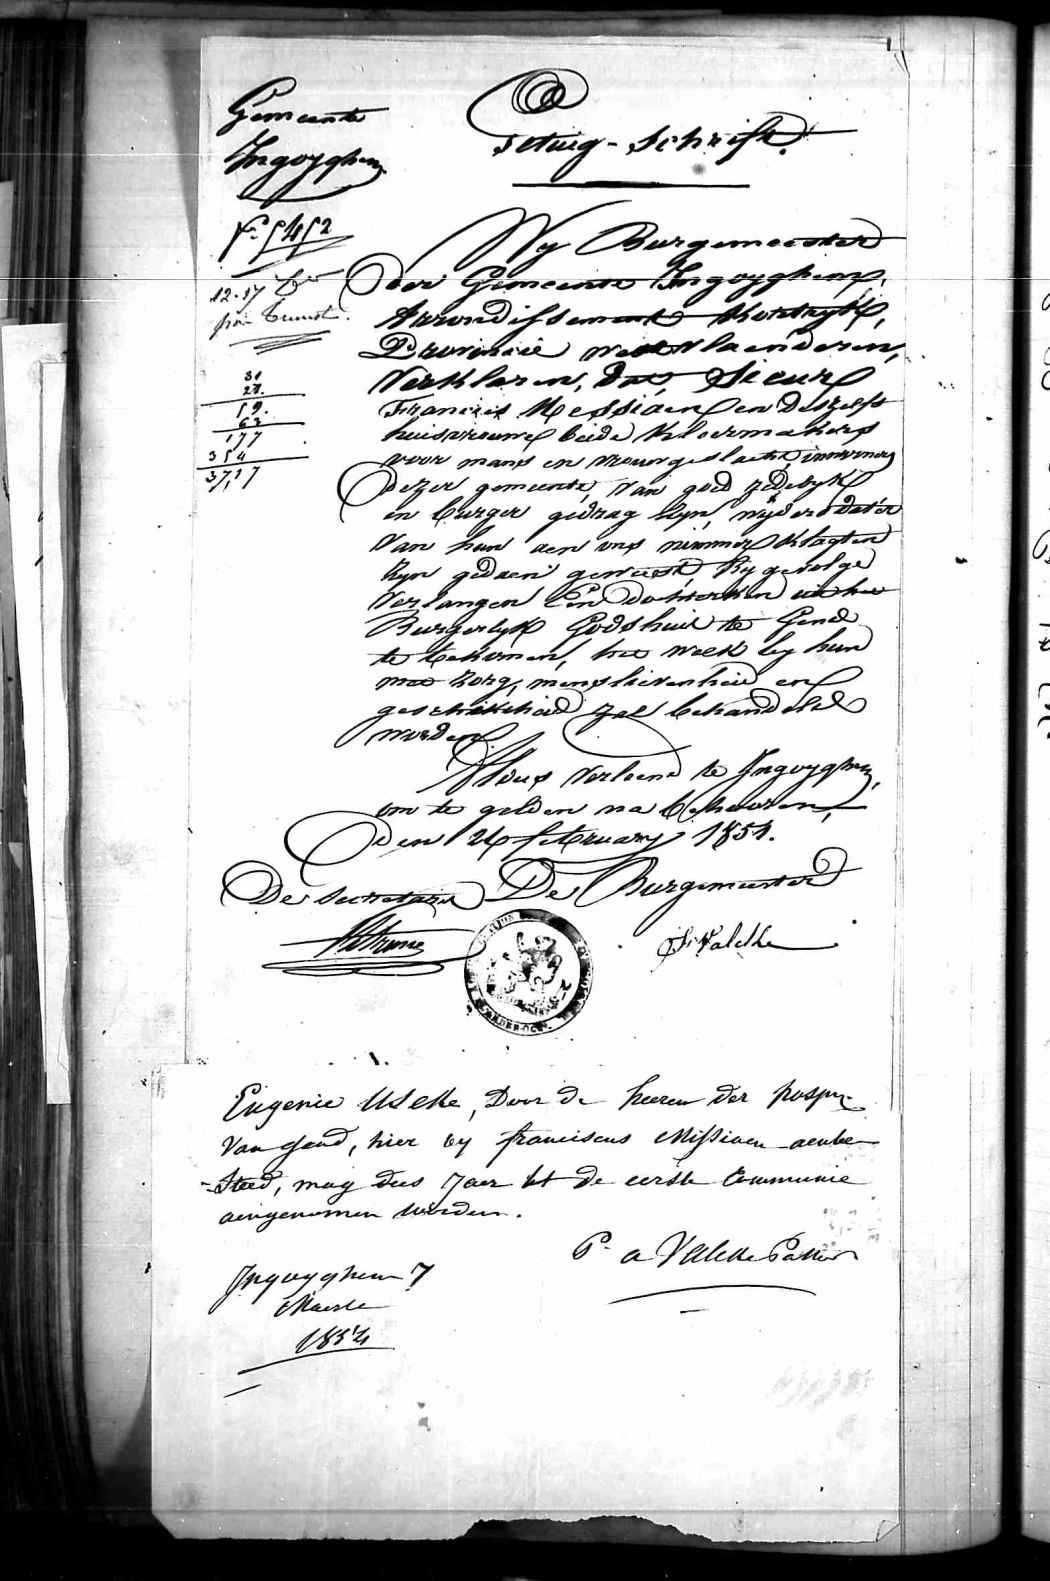 Gemeente
Ingoyghem
Getuig-Schrift.
N° 5452
Wy Burgemeester
der Gemeente Ingoyghem,
Arrondissement Kortryk,
Provincie westvlaenderen,
Verklaren, dat, Sieur
Francis Messiaen en deszelfs
huisvrouwe beide kleermakers
voor mans en vrouwgeslacht, inwooners
dezer gemeente, van goed zedelyk
en burger gedrag zyn, nyders dat'er
van hun aen ons nimmer klagten
zyn gedaen geweest, By gevolge
Verlangen Een dochterken uit het
Burgerlyk Godshuis te Gend
te bekomen, het welk by hun
met zorg, menschlievenheid en
geschiktheid zal behandeld
worden
Aldus verleend te Ingoyghem,
om te gelden na behooren,
den 24 february 1854.
De Secretaris De Burgemeester
31
28.
59.
63
177
354
37,17
Eugenie Uselle, Door de heeren der hospn.
Van Gend, hier by franciscus Missiaen aenbe-
-steed, mag dees jaer tot de eerste Communie
aengenomen worden.
Ingoyghem 7
Maerte
1854